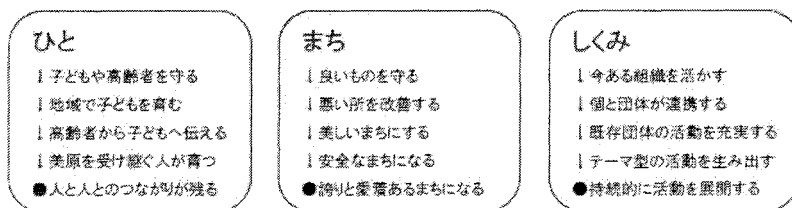 ひと
↓子どもや高齢者を守る
↓地域で子どもを育む
↓高齢者から子どもへ伝える
↓美原を受け継ぐ人が育つ
●人と人とのつながりが残る
まち
↓良いものを守る
↓悪い所を改善する
↓美しいまちにする
↓安全なまちになる
●誇りと愛着あるまちになる
しくみ
↓今ある組織を活かす
↓個と団体が連携する
↓既存団体の活動を充実する
↓テーマ型の活動を生み出す
●持続的に活動を展開する